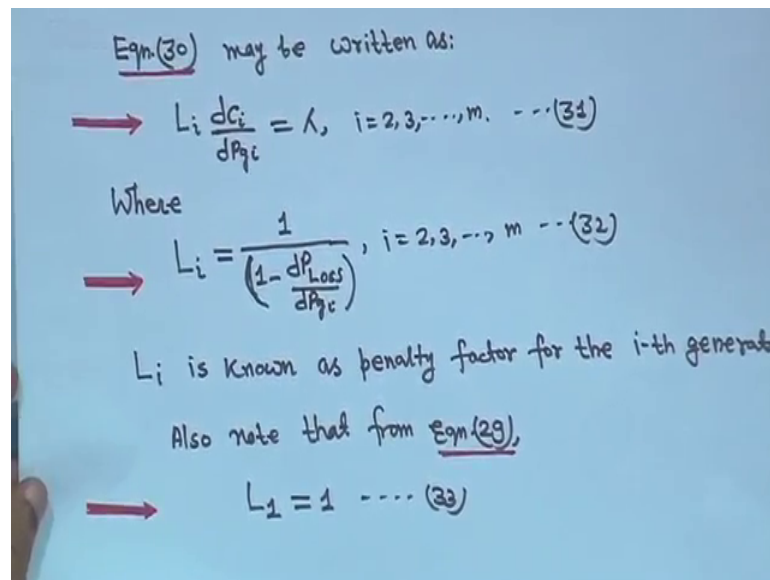 Eqn.(30) may be written as:
Li dCi/dPgi = λ, i = 2, 3, ----, m. ---(31)
Where
Li = 1/(1 - dPLoss/dPgi), i = 2, 3, --, m --(32)
Li is known as penalty factor for the i-th generat
Also note that from Eqn.(29),
L1 = 1 ---- (33)